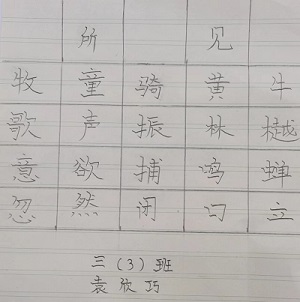 所见
牧童骑黄牛
歌声振林樾
意欲捕鸣蝉
忽然闭口立
三(3)班
袁欣巧